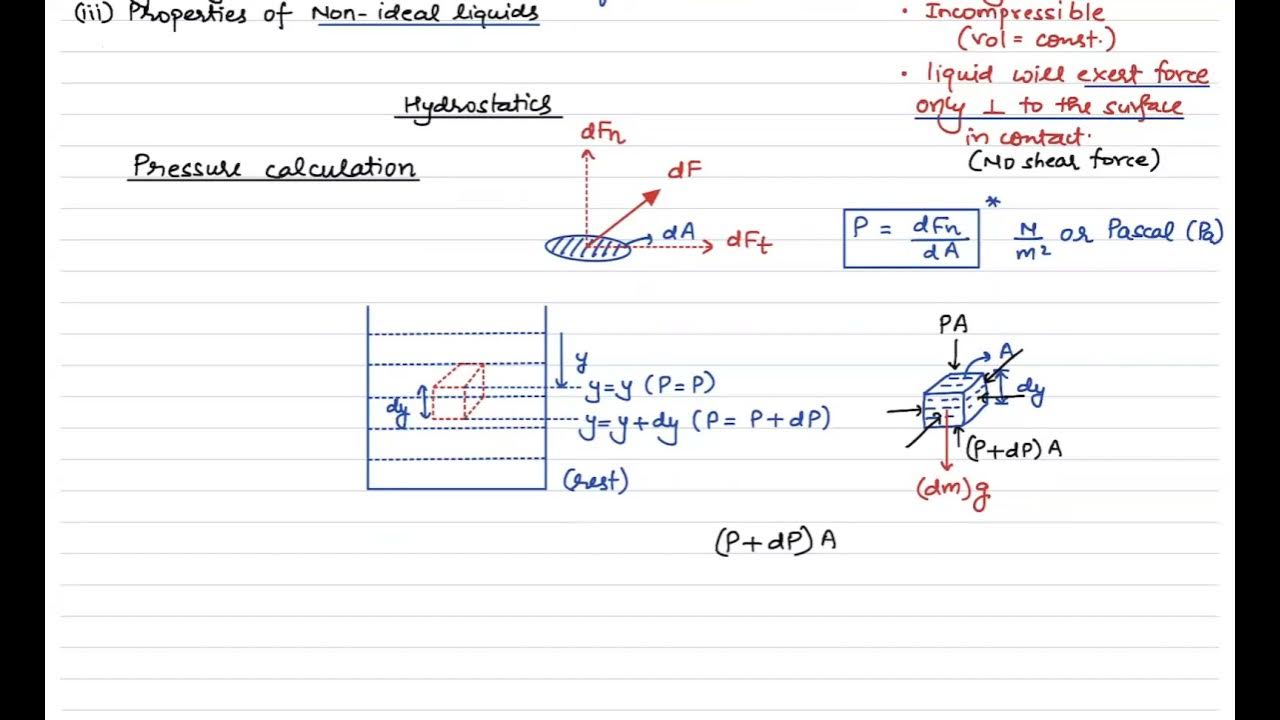 (iii) Properties of Non-ideal liquids
• Incompressible
(vol = const.)
• liquid will exert force
only ⊥ to the surface
in contact.
(No shear force)
Hydrostatics
Pressure calculation
dFn
dF
dA
dFt
P = dFn/dA
*
N/m² or Pascal (Pa)
y
dy
y=y (P=P)
y=y+dy (P= P+dP)
(rest)
PA
A
dy
(P+dP) A
(dm)g
(P+dP) A